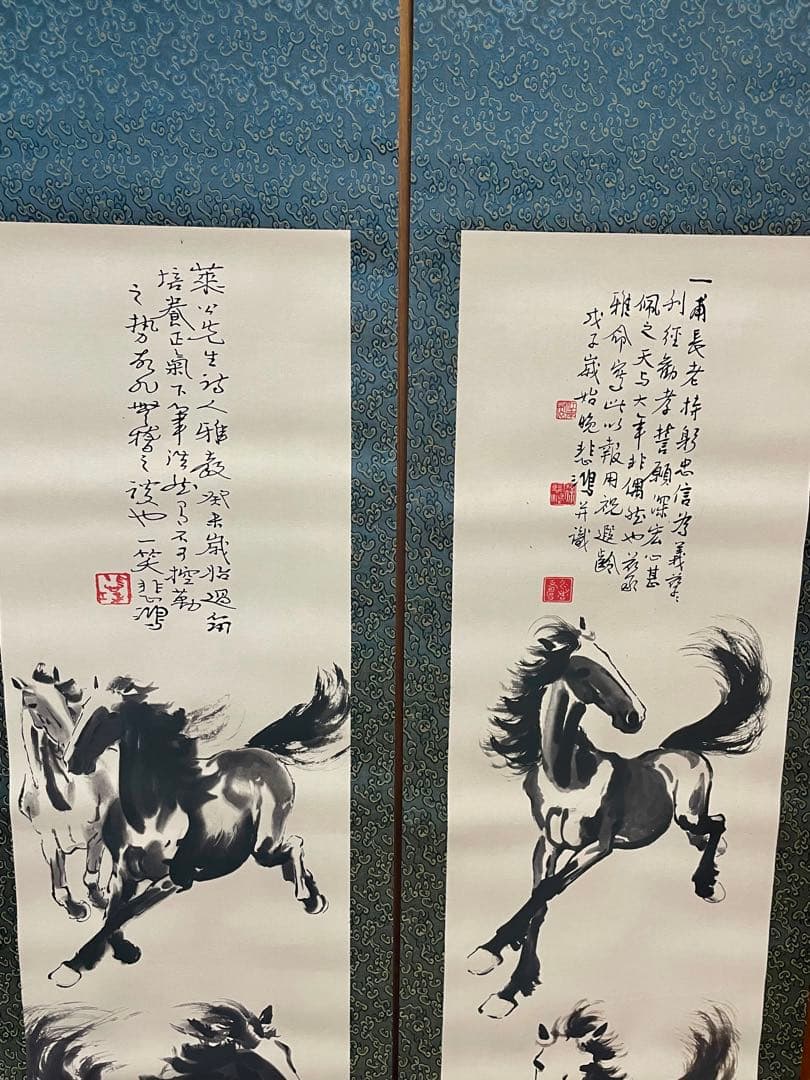 一甫長老持躬忠信為義孳々
利經勸孝誓願深宏心甚
佩之天与大年非偶然也茲承
雅命寫此以報用祝遐齡
戊子歲始晚悲鴻并識
萊公先生詩人雅教癸未歲始過
培養正氣下筆浩然有不可控勒
之勢無稽之談也一笑悲鴻